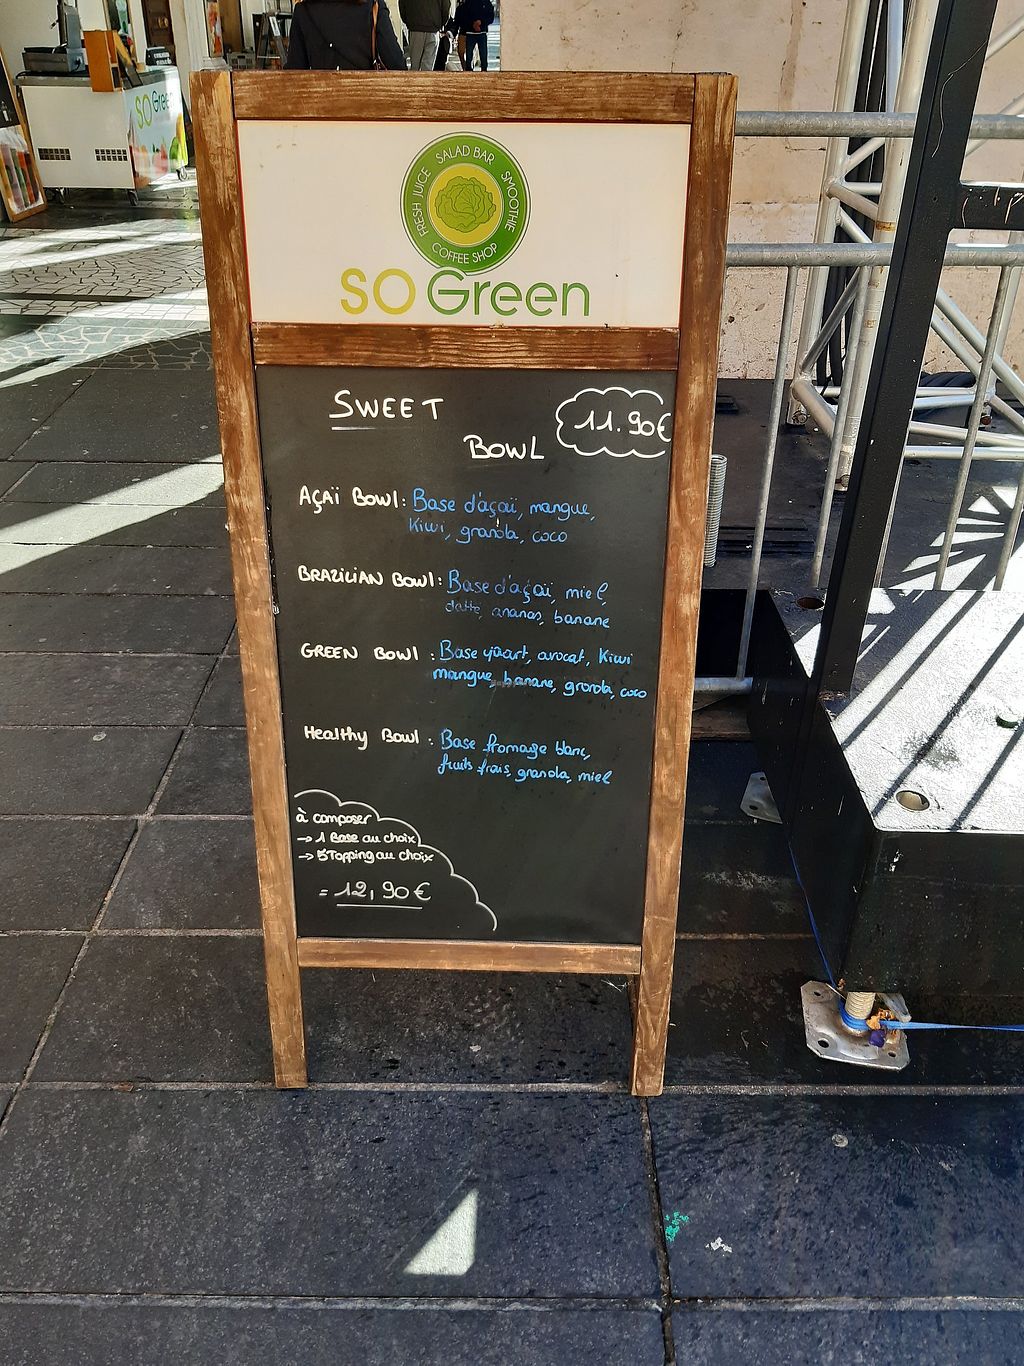 SO Green
FRESH JUICE SALAD BAR SMOOTHIE
COFFEE SHOP
SO Green
SWEET
BOWL
11.90€
AÇAÏ BOWL: Base d'açaï, mangue,
Kiwi, granola, coco
BRAZILIAN BOWL: Base d'açaï, miel,
datte, ananas, banane
GREEN BOWL: Base yaourt, avocat, Kiwi
mangue, banane, granola, coco
Healthy Bowl: Base fromage blanc,
fruits frais, granola, miel
à composer
→ 1 Base au choix
→ 5 Topping au choix
= 12,90€